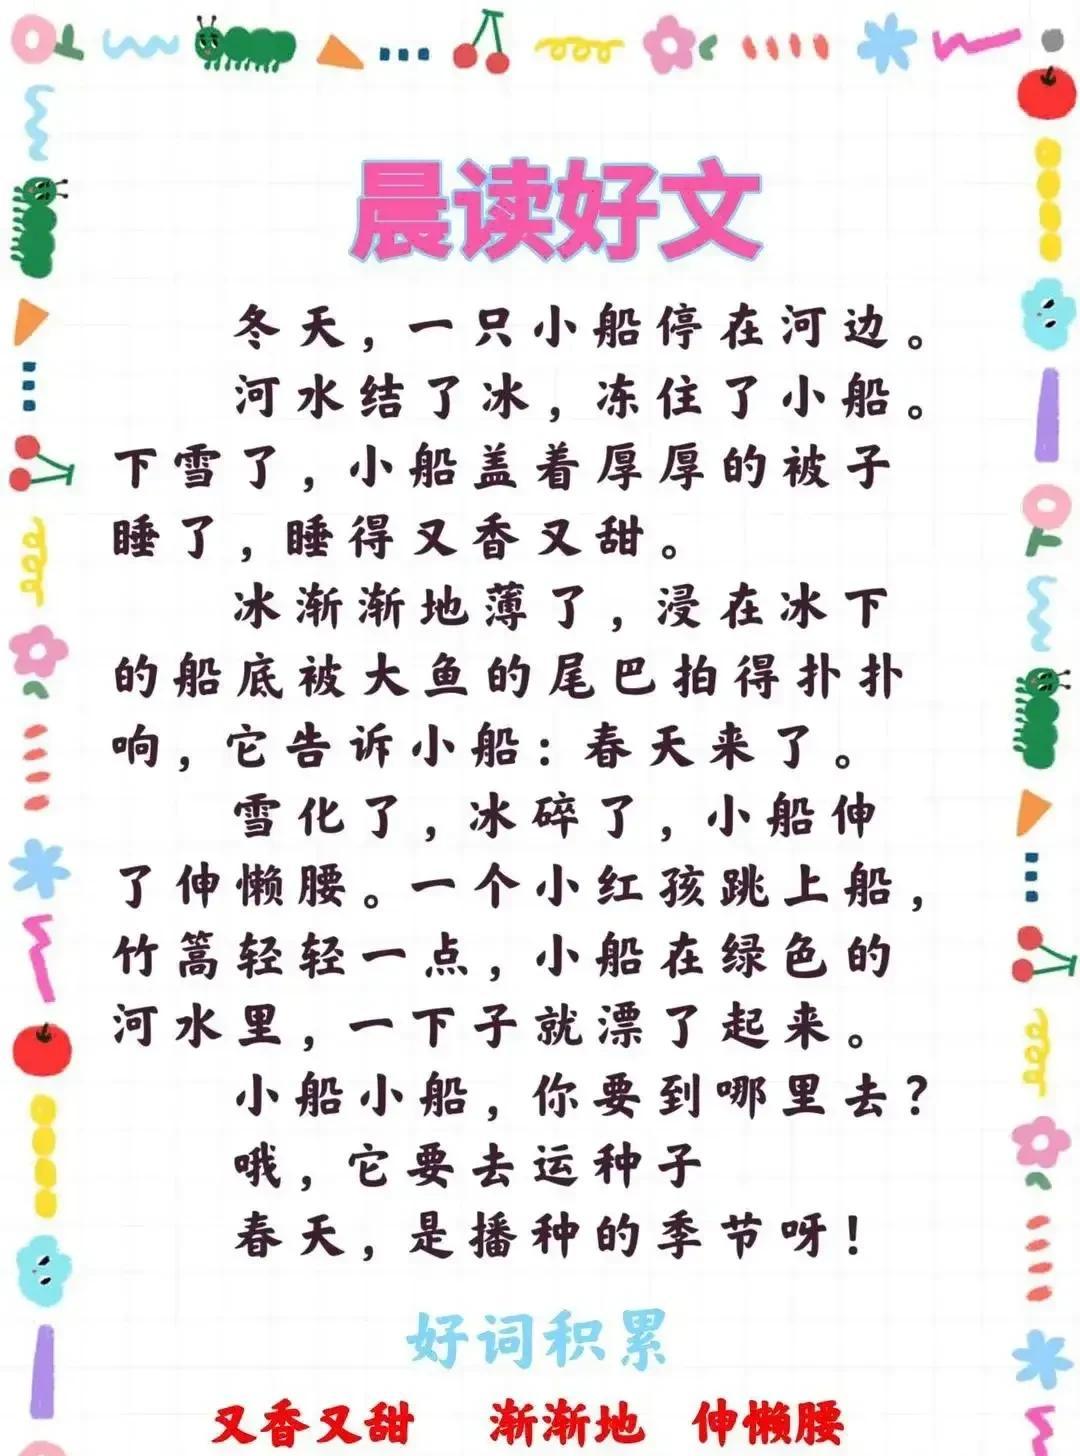 晨读好文
冬天，一只小船停在河边。
河水结了冰，冻住了小船。
下雪了，小船盖着厚厚的被子
睡了，睡得又香又甜。
冰渐渐地薄了，浸在冰下
的船底被大鱼的尾巴拍得扑扑
响，它告诉小船：春天来了。
雪化了，冰碎了，小船伸
了伸懒腰。一个小红孩跳上船，
竹篙轻轻一点，小船在绿色的
河水里，一下子就漂了起来。
小船小船，你要到哪里去？
哦，它要去运种子
春天，是播种的季节呀！
好词积累
又香又甜 渐渐地 伸懒腰